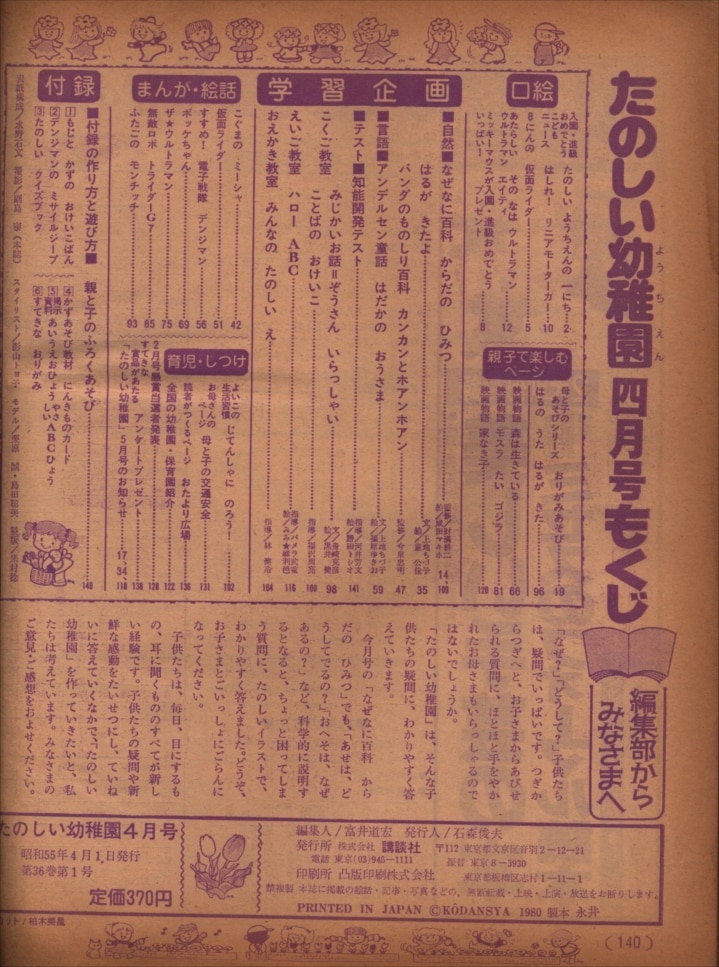 たのしい幼稚園 四月号もくじ
ようちえん
口絵
入園・進級おめでとう たのしい ようちえんの 一にち 2
こどもニュース はしれ! リニアモーターカー 10
8にんの 仮面ライダー 5
あたらしいウルトラマン その なは ウルトラマン エイティ 12
ミッキーマウスが入園・進級おめでとう いっぱい! プレゼント 8
親子で楽しむページ
母と子のあそびシリーズ おりがみあそび 19
はるの うた はるが きた 96
映画物語 森は生きている 66
映画物語 モスラ たい ゴジラ 81
映画物語 家なき子 120
学習企画
■自然■なぜなに百科 からだの ひみつ 14 109
はるが きたよ 35
パンダのものしり百科 カンカンとホアンホアン 47
■言語■アンデルセン童話 はだかの おうさま 59
■テスト■知能開発テスト 141
こくご教室 みじかいお話=ぞうさん いらっしゃい 98
ことばの おけいこ 160
えいご教室 ハロー ABC 116
おえかき教室 みんなの たのしい え 104
まんが・絵話
こぐまの ミーシャ 42
仮面ライダー 51
すすめ! 電子戦隊 デンジマン 56
ポッケちゃん 69
ザ★ウルトラマン 75
無敵ロボ トライダーG7 85
ふたごの モンチッチ 93
育児・しつけ
よいこの生活習慣 じてんしゃに のろう! 102
お母さんのページ 母と子の交通安全 131
読者がつくるページ おたより広場 136
全国の幼稚園・保育園紹介 122
2月号懸賞当選者発表 128
すてきな賞品があたる アンケートプレゼント 138
「たのしい幼稚園」5月号のお知らせ 17 34、118
付録
■付録の作り方と遊び方■ 親と子のふろくあそび 148
1もじと かずの おけいこばん
2デンジマンの ミサイルジープ
3たのしい クイズブック
4かずあそび教材 にんきものカード
5掲示資料 あいうえおひょう やさしいABCひょう
6すてきな おりがみ
編集部からみなさまへ
「なぜ?」「どうして?」子供たち
は、疑問でいっぱいです。つぎか
らつぎへと、お子さまからあびせ
られる質問に、ほとほと手をやか
れたお母さまもいらっしゃるので
はないでしょうか。
「たのしい幼稚園」は、そんな子
供たちの疑問に、わかりやすく答
えていきます。
今月号の「なぜなに百科 から
だの ひみつ」でも、「あせは、ど
うしてでるの?」「おへそは、なぜ
あるの?」など、科学的に説明す
るとなると、ちょっと困ってしま
う質問に、たのしいイラストで、
わかりやすく答えました。どうぞ、
お子さまとごいっしょにごらんに
なってください。
子供たちは、毎日、目にするも
の、耳に聞くもののすべてが新し
い経験です。子供たちの疑問や新
鮮な感動をたいせつにし、ていね
いに答えていくなかで、「たのしい
幼稚園」を作っていきたいと、私
たちは考えています。みなさまの
ご意見・ご感想をおよせください。
たのしい幼稚園4月号
昭和55年4月1日発行
第36巻第1号
定価370円
編集人/富井道宏 発行人/石森俊夫
発行所 株式会社 講談社 〒112 東京都文京区音羽2-12-21
電話 東京(03)945-1111 振替 東京8-3930
印刷所 凸版印刷株式会社 東京都板橋区志村1-11-1
禁複製 本誌に掲載の絵話・記事・写真などの、無断転載・上映・上演・放送をお断りします。
PRINTED IN JAPAN ©KŌDANSYA 1980 製本 永井
カット/柏木美風
(140)